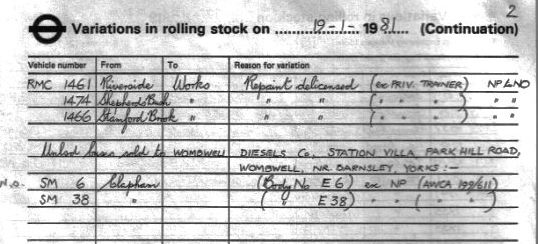 2
Variations in rolling stock on 19-1- 1981 (Continuation)
Vehicle number From To Reason for variation
RMC 1461 Riverside Works Repaint delicensed (ex PRIV. TRAINER) NP LNO
1474 Shepherds Bush " " " ( " " " ) " "
1466 Stamford Brook " " " ( " " " ) " "
Unlicd buses sold to WOMBWELL DIESELS Co, STATION VILLA, PARK HILL ROAD,
WOMBWELL, NR. BARNSLEY, YORKS :-
N.O. SM 6 Clapham (Body No E6) ex NP (AWCA 199/611)
SM 38 " ( " E38) " " ( " " )